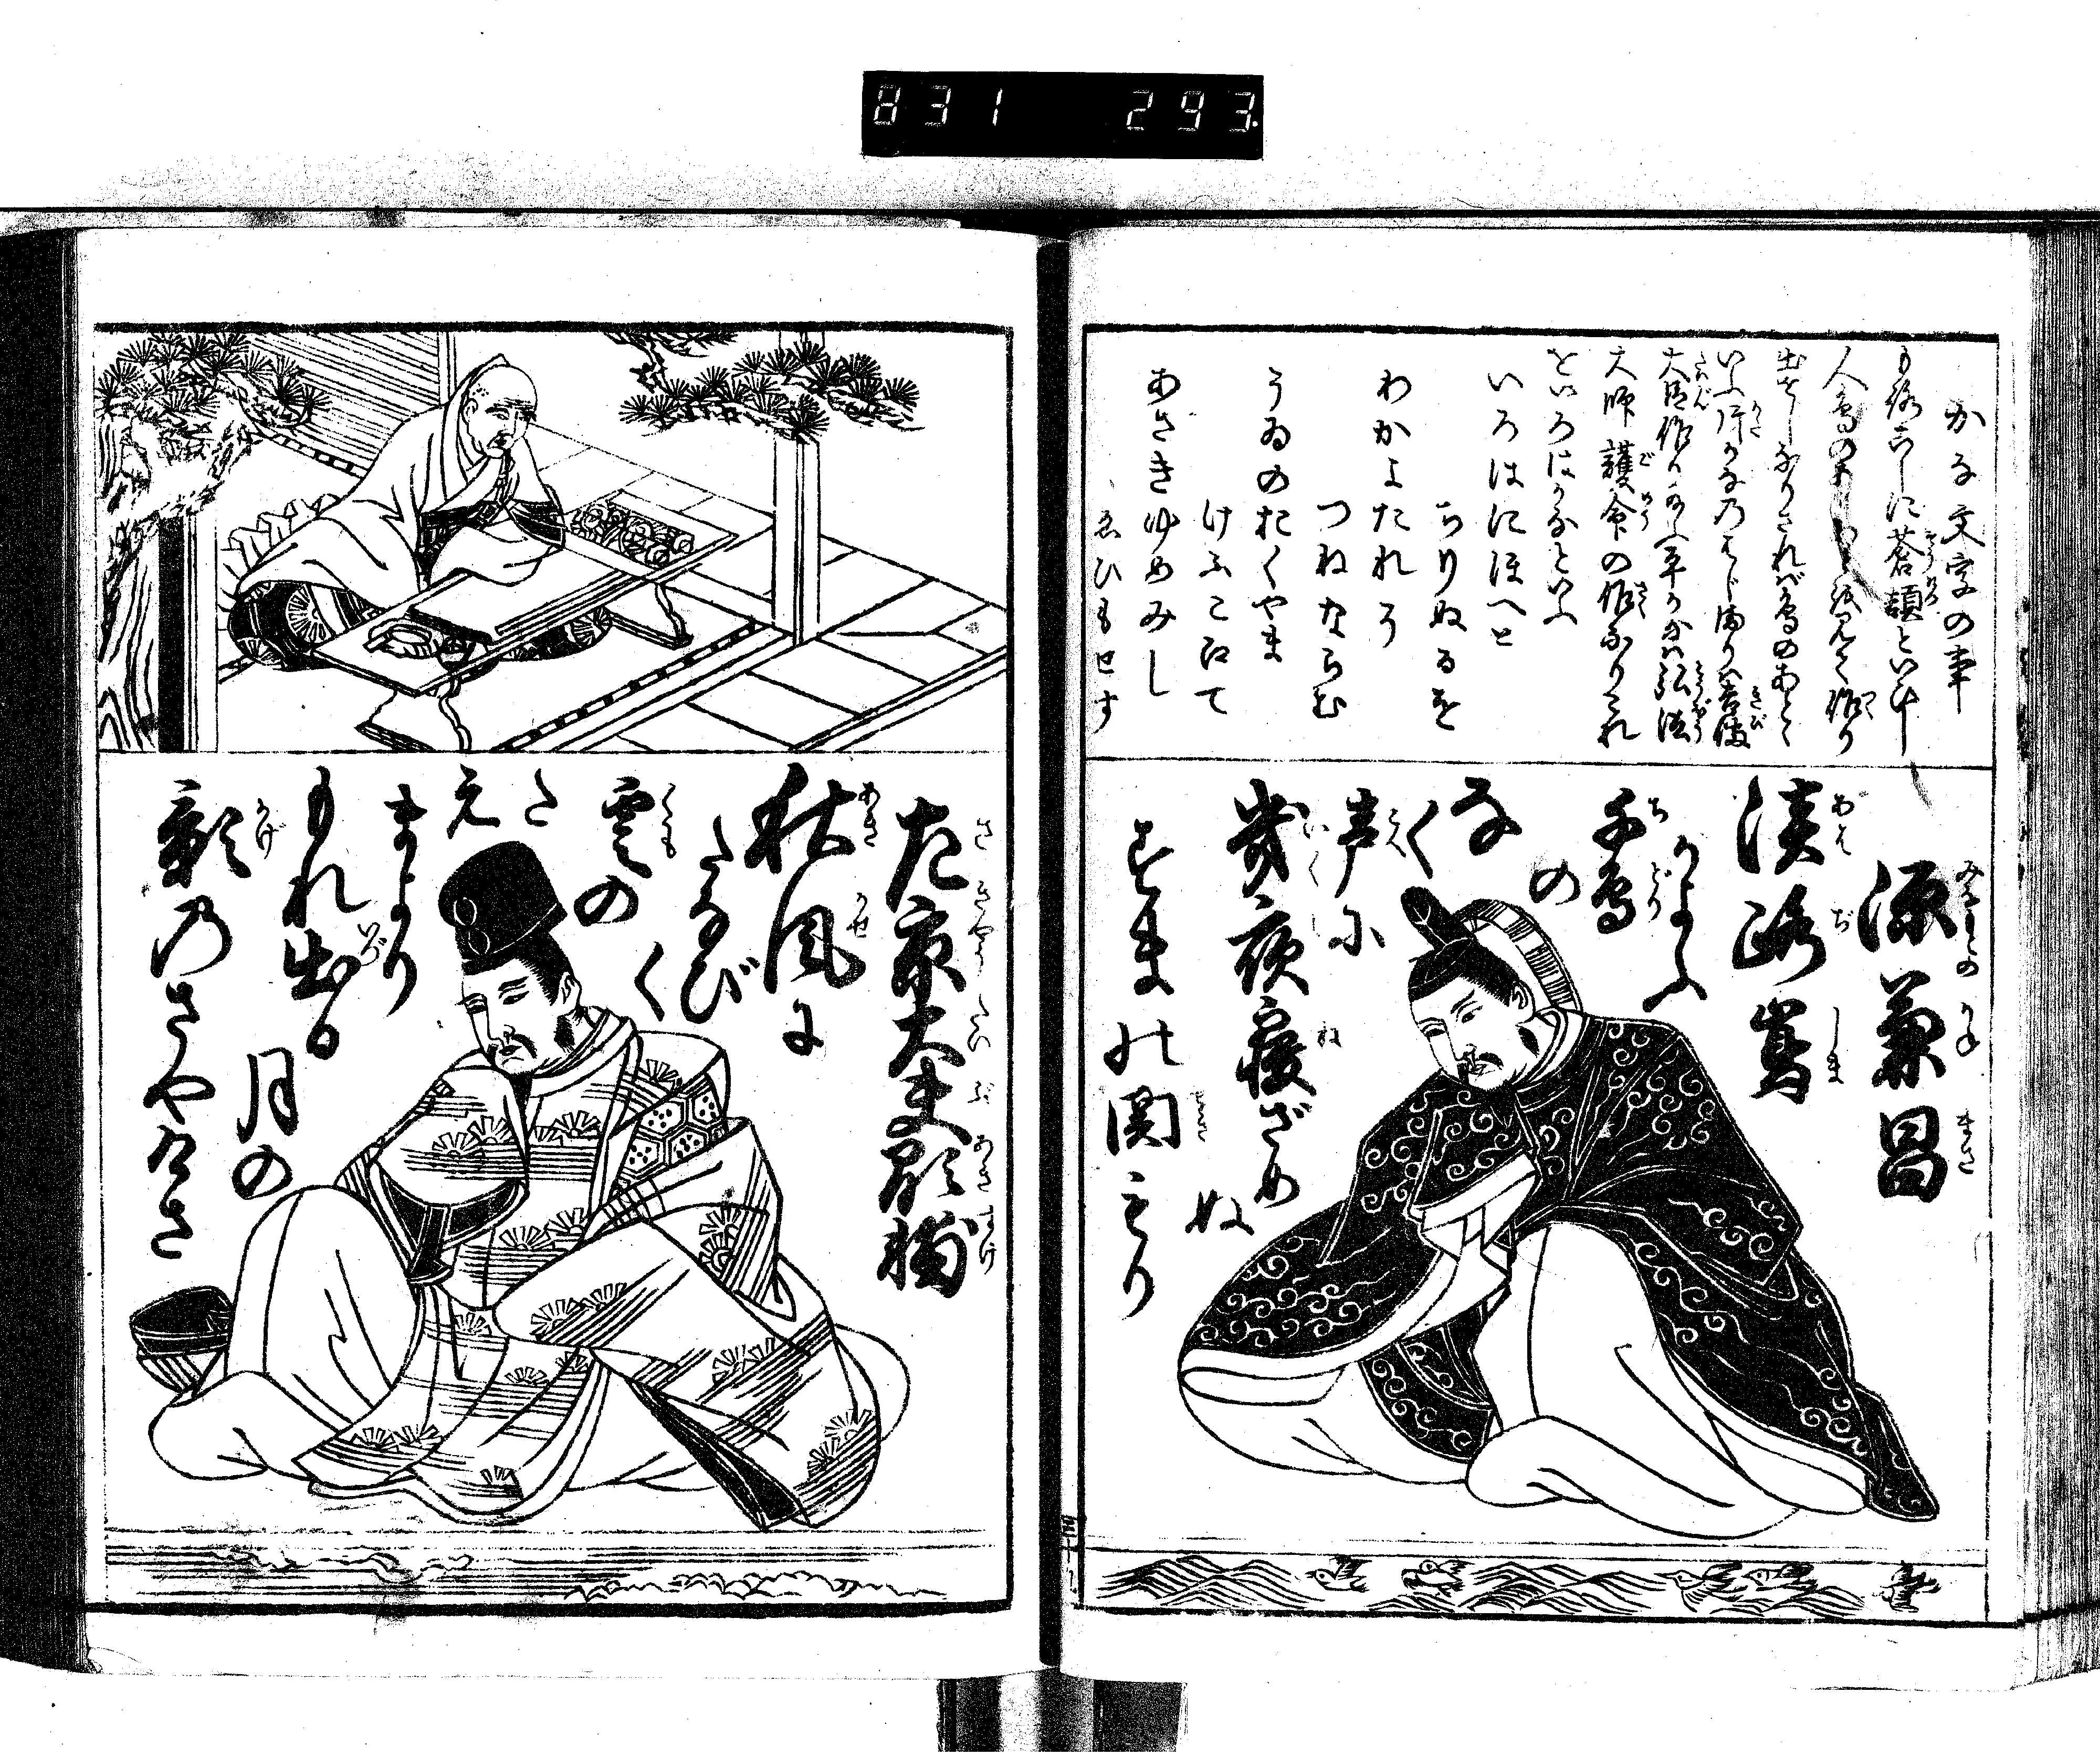 831 293.
かな文字の事
もろこしに蒼頡といひし
人鳥の
出せしなりされば鳥のあと
いふ片かなのはじまりハ吉備
大臣作り
大師護命の作なりこれ
をいろはかなといふ
いろはにほへと
ちりぬるを
わかよたれそ
つねならむ
うゐのおくやま
けふこえて
あさきゆめみし
ゑひもせす
源兼昌
淡路嶌
かよふ
千鳥
の
な
く
声に
幾夜寝ざめ
ぬ
すま乃関もり
左京大夫顕輔
秋風に
たなび
く
雲の
た
え
まより
もれ出る
月の
影乃さやけさ